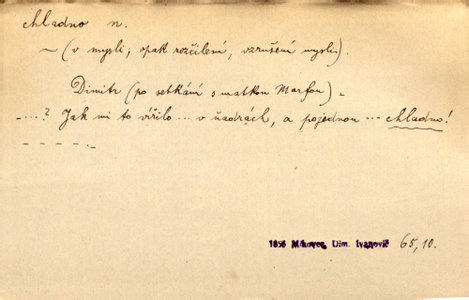 chladno n.
~ (v mysli; opak rozčilení, vzrušení mysli).
Dimitr (po setkání s matkou Marfou) „
– ... ? Jak mi to vířilo ... v ňadrách, a pojednou ... chladno!
– – – – .
1856 Mikovec, Dim. Ivanovič 65, 10.